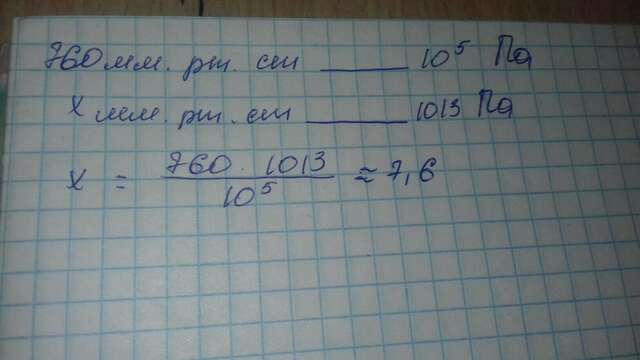 760 мм. рт. ст ____ 10⁵ Па
х мм. рт. ст ____ 1013 Па
х = 760 · 1013 / 10⁵ ≈ 7,6